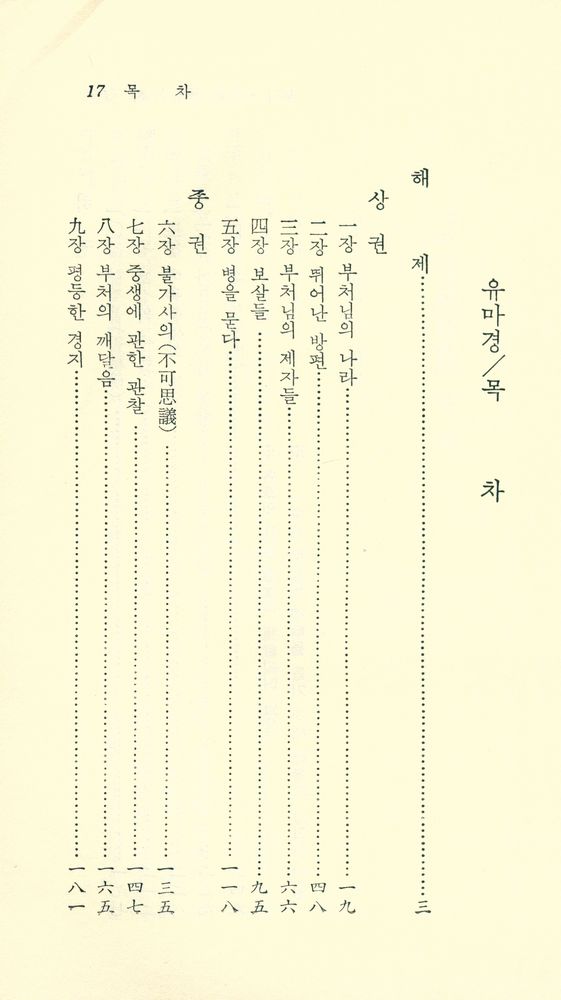 17 목 차
유마경/목 차
해 제……………三
상 권
一장 부처님의 나라……………一九
二장 뛰어난 방편……………四八
三장 부처님의 제자들……………六六
四장 보살들……………九五
五장 병을 묻다……………一一八
중 권
六장 불가사의(不可思議)……………一三五
七장 중생에 관한 관찰……………一四七
八장 부처의 깨달음……………一六五
九장 평등한 경지……………一八一